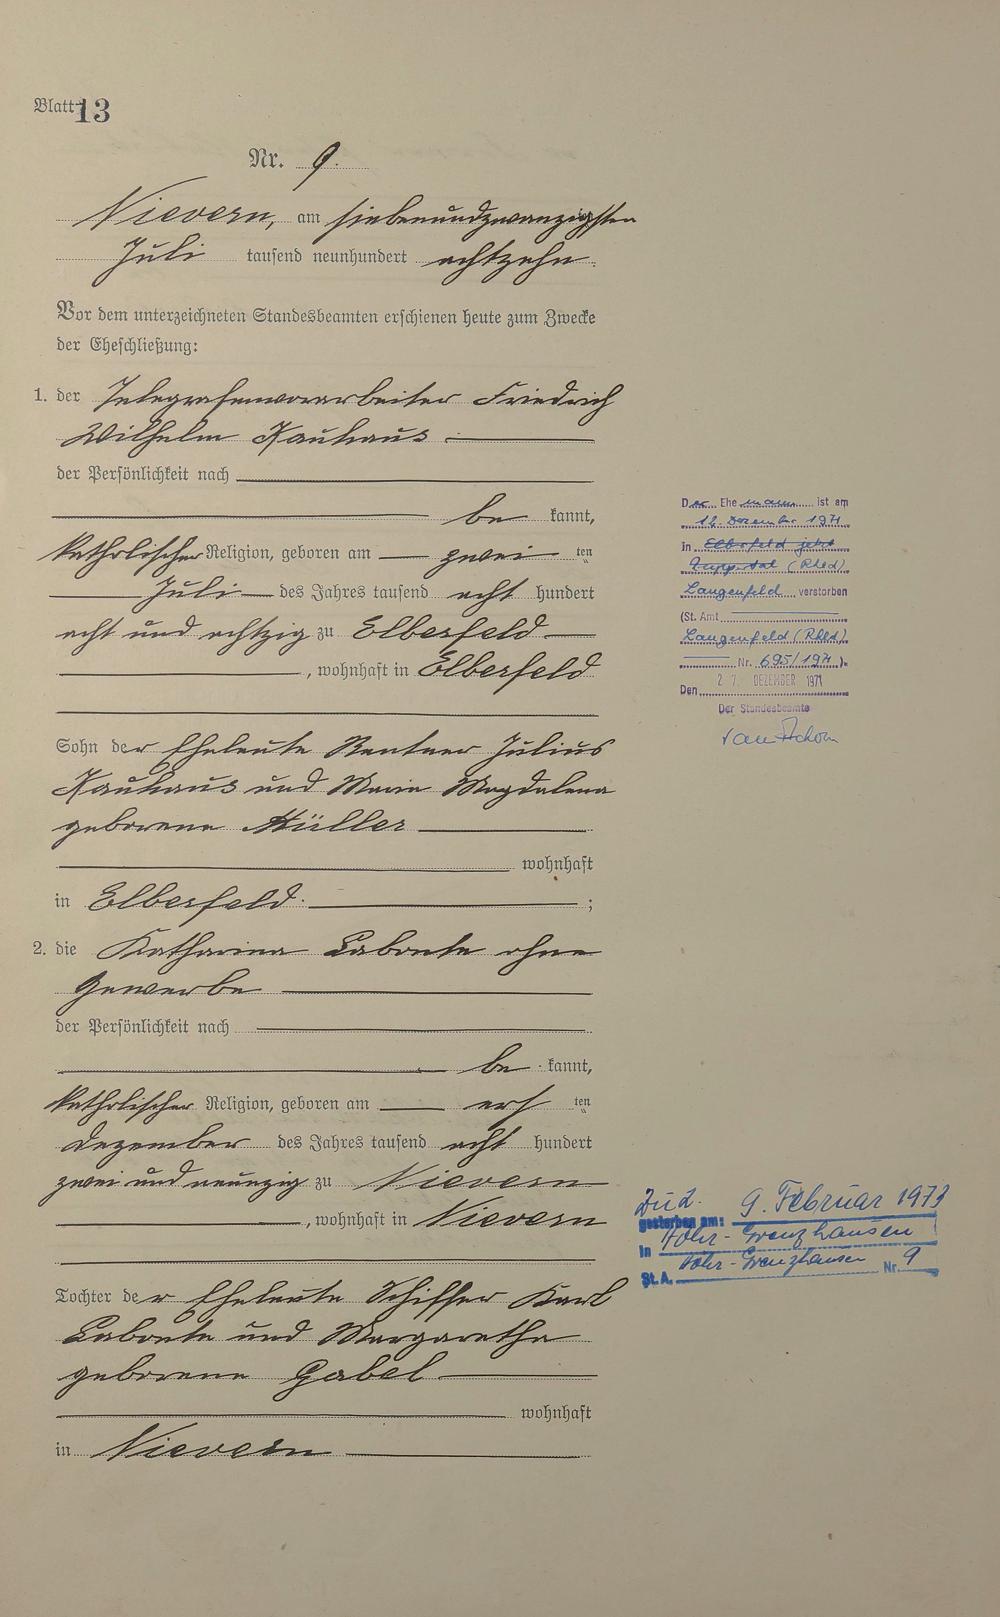 Blatt 13
Nr. 9.
Nievern, am siebenundzwanzigsten
Juli tausend neunhundert achtzehn.
Vor dem unterzeichneten Standesbeamten erschienen heute zum Zwecke
der Eheschließung:
1. der Telegrafenvorarbeiter Friedrich
Wilhelm Kauhaus
der Persönlichkeit nach
be kannt,
katholischer Religion, geboren am zwei ten
Juli des Jahres tausend acht hundert
acht und achtzig zu Elberfeld
, wohnhaft in Elberfeld
Sohn der Eheleute Rentner Julius
Kauhaus und Maria Magdalena
geborene Müller
wohnhaft
in Elberfeld. ;
2. die Katharina Labonte ohne
Gewerbe
der Persönlichkeit nach
be kannt,
katholischer Religion, geboren am ers ten
Dezember des Jahres tausend acht hundert
zwei und neunzig zu Nievern
, wohnhaft in Nievern
Tochter der Eheleute Schiffer Karl
Labonte und Margaretha
geborene Gabel
wohnhaft
in Nievern
Der Ehemann ist am
12. Dezember 1971
in Elberfeld jetzt
(Rhld)
Langenfeld verstorben
(St. Amt
Langenfeld (Rhld)
Nr. 695/1971).
Den 27. DEZEMBER 1971
Der Standesbeamte
Zu 2.
gestorben am: 9. Februar 1973
in Höhr-Grenzhausen
St.A. Höhr-Grenzhausen Nr. 9